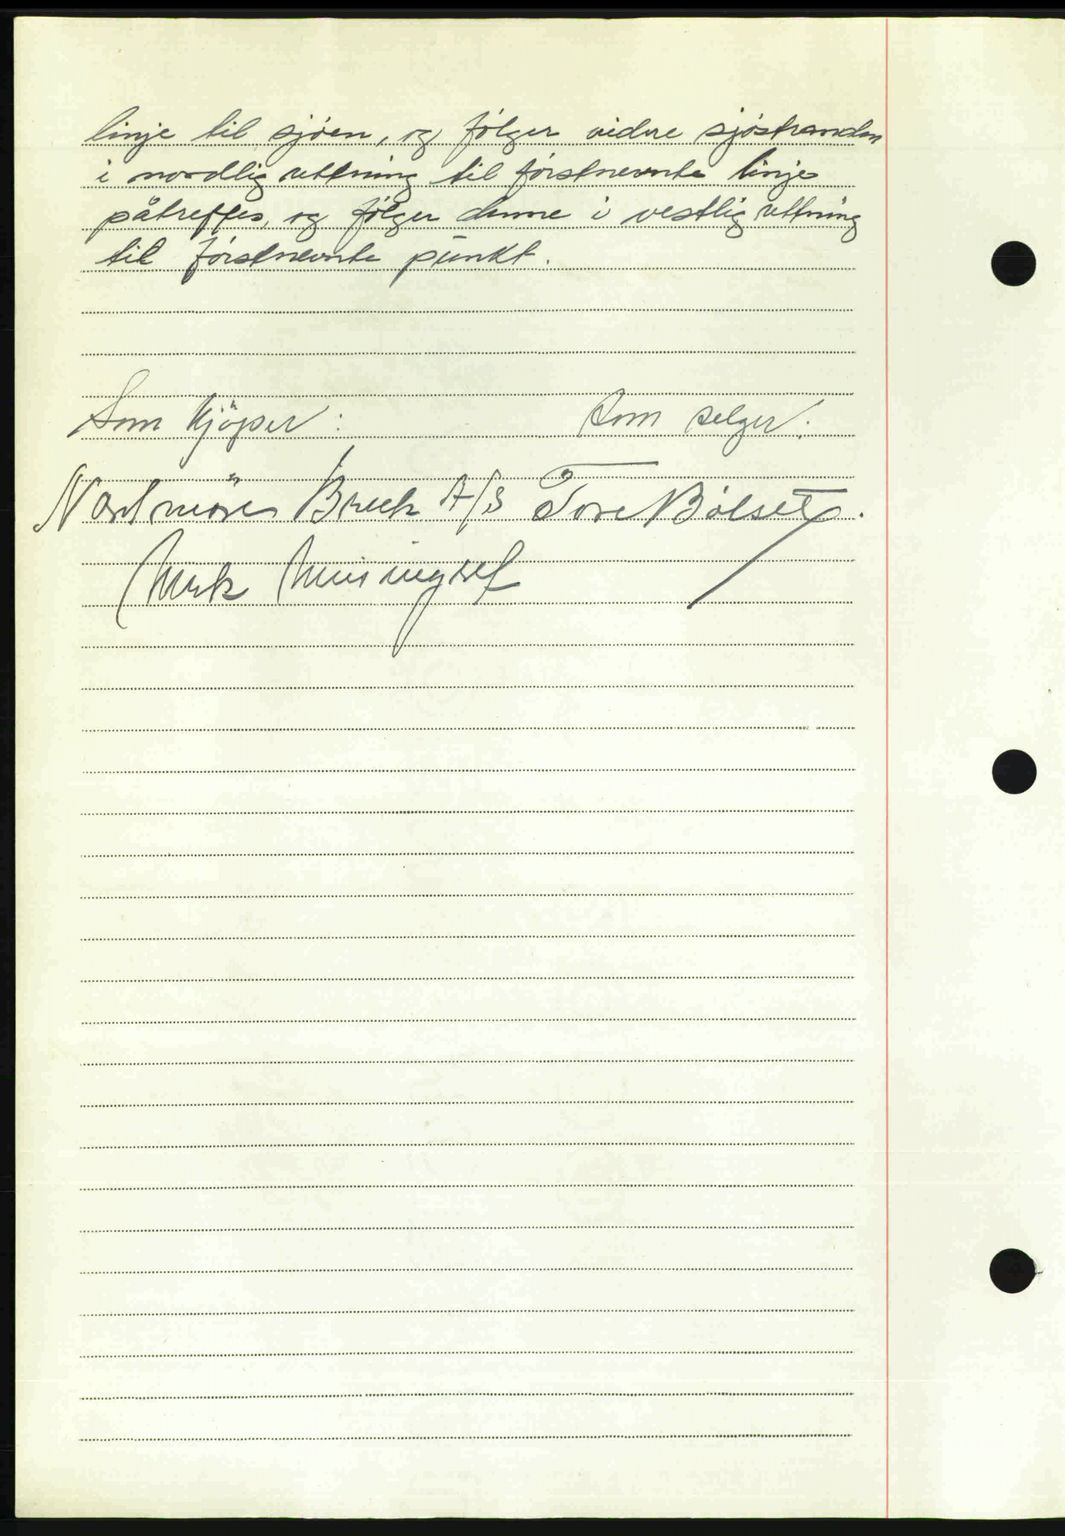 linje til sjøen, og følger vidre sjøstranden
i nordlig rettning til førstnevnte linje
påtreffes, og følger denne i vestlig rettning
til førstnevnte punkt.
Som kjøper: Som selger:
Nordmøre Bruk A/S Tore Bølset.